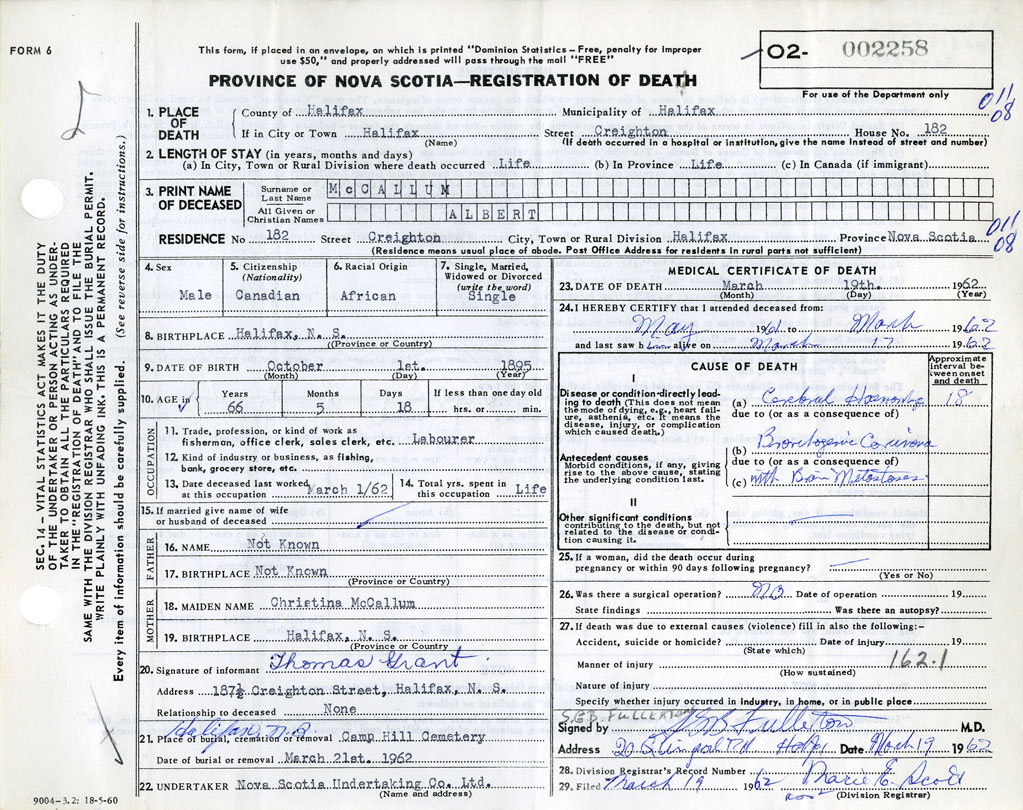 FORM 6
This form, if placed in an envelope, on which is printed "Dominion Statistics – Free, penalty for improper
use $50," and properly addressed will pass through the mail "FREE"
O2- 002258
For use of the Department only
PROVINCE OF NOVA SCOTIA—REGISTRATION OF DEATH
011
08
1. PLACE OF DEATH
County of Halifax Municipality of Halifax
If in City or Town Halifax Street Creighton House No. 182
(Name) (If death occurred in a hospital or institution, give the name instead of street and number)
2. LENGTH OF STAY (in years, months and days)
(a) In City, Town or Rural Division where death occurred Life (b) In Province Life (c) In Canada (if immigrant)
3. PRINT NAME OF DECEASED
Surname or Last Name McCALLUM
All Given or Christian Names ALBERT
011
08
RESIDENCE No 182 Street Creighton City, Town or Rural Division Halifax Province Nova Scotia
(Residence means usual place of abode. Post Office Address for residents in rural parts not sufficient)
4. Sex Male
5. Citizenship (Nationality) Canadian
6. Racial Origin African
7. Single, Married, Widowed or Divorced (write the word) Single
8. BIRTHPLACE Halifax, N. S.
(Province or Country)
9. DATE OF BIRTH October 1st. 1895
(Month) (Day) (Year)
10. AGE in Years 66 Months 5 Days 18 If less than one day old hrs. or min.
OCCUPATION
11. Trade, profession, or kind of work as
fisherman, office clerk, sales clerk, etc. Labourer
12. Kind of industry or business, as fishing,
bank, grocery store, etc.
13. Date deceased last worked at this occupation March 1/62
14. Total yrs. spent in this occupation Life
15. If married give name of wife
or husband of deceased
FATHER
16. NAME Not Known
17. BIRTHPLACE Not Known
(Province or Country)
MOTHER
18. MAIDEN NAME Christina McCallum
19. BIRTHPLACE Halifax, N. S.
(Province or Country)
20. Signature of informant Thomas Grant
Address 187½ Creighton Street, Halifax, N. S.
Relationship to deceased None
Halifax N.S.
21. Place of burial, cremation or removal Camp Hill Cemetery
Date of burial or removal March 21st. 1962
22. UNDERTAKER Nova Scotia Undertaking Co. Ltd.
(Name and address)
9004-3.2: 18-5-60
MEDICAL CERTIFICATE OF DEATH
23. DATE OF DEATH March 19th. 1962
(Month) (Day) (Year)
24. I HEREBY CERTIFY that I attended deceased from:
May 1961 to March 1962
and last saw him alive on March 17 1962
CAUSE OF DEATH
Approximate interval between onset and death
I
Disease or condition directly leading to death (This does not mean
the mode of dying, e.g., heart failure, asthenia, etc. It means the
disease, injury, or complication
which caused death.)
(a) Cerebral Haemorrhage 18
due to (or as a consequence of)
Antecedent causes
Morbid conditions, if any, giving
rise to the above cause, stating
the underlying condition last.
(b) Bronchogenic Carcinoma
due to (or as a consequence of)
(c) with Brain Metastases
II
Other significant conditions
contributing to the death, but not
related to the disease or condition causing it.
25. If a woman, did the death occur during
pregnancy or within 90 days following pregnancy?
(Yes or No)
26. Was there a surgical operation? No Date of operation 19
State findings Was there an autopsy?
27. If death was due to external causes (violence) fill in also the following:–
Accident, suicide or homicide? Date of injury 19
(State which)
Manner of injury 162.1
(How sustained)
Nature of injury
Specify whether injury occurred in industry, in home, or in public place
S.G.B. FULLERTON
Signed by SGB Fullerton M.D.
Address Date March 19 1962
28. Division Registrar's Record Number
29. Filed March 19 1962 Marie E. Scott
(Division Registrar)
SEC. 14 – VITAL STATISTICS ACT MAKES IT THE DUTY
OF THE UNDERTAKER OR PERSON ACTING AS UNDERTAKER TO OBTAIN ALL THE PARTICULARS REQUIRED
IN THE "REGISTRATION OF DEATH" AND TO FILE THE
SAME WITH THE DIVISION REGISTRAR WHO SHALL ISSUE THE BURIAL PERMIT.
WRITE PLAINLY WITH UNFADING INK. THIS IS A PERMANENT RECORD.
Every item of information should be carefully supplied. (See reverse side for instructions.)